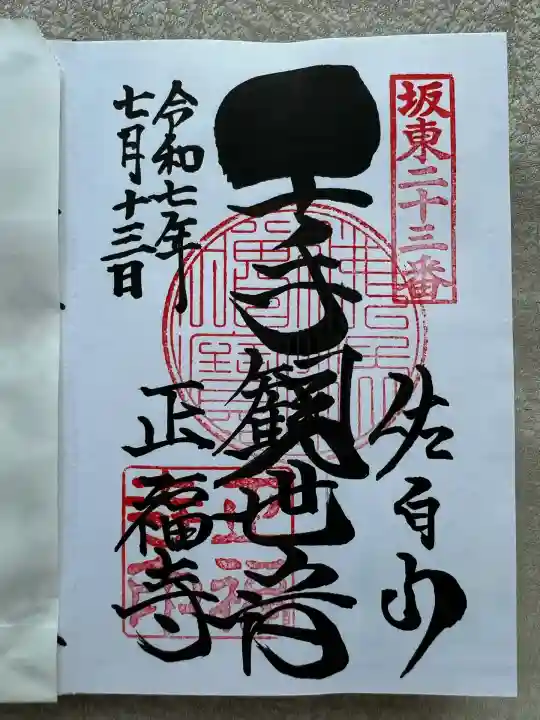 坂東二十三番
佐白山
千手観世音
正福寺
令和七年
七月十三日